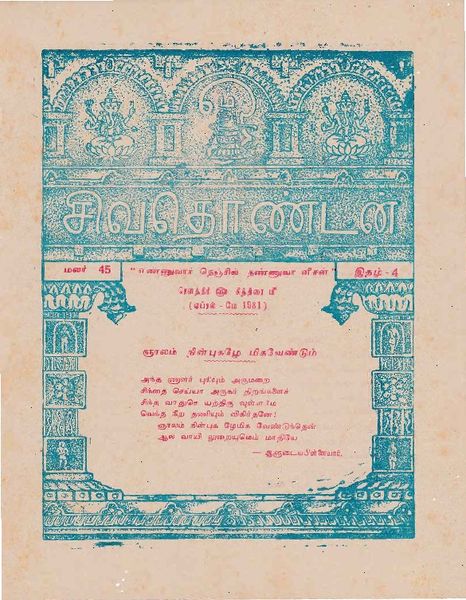 சிவதொண்டன்
மலர் 45
"எண்ணுவார் நெஞ்சில் நண்ணுவா னீசன்"
இதழ் - 4
ரௌத்திரி ௵ சித்திரை ௴
(ஏப்ரல் - மே 1981)
ஞாலம் நின்புகழே மிகவேண்டும்
அந்த ணாளர் புரியும் அருமறை
சிந்தை செய்யா அருகர் திறங்களைச்
சிந்த வாதுசெ யத்திரு வுள்ளமே
வெந்த நீற தணியும் விகிர்தனே!
ஞாலம் நின்புக ழேமிக வேண்டுந்தென்
ஆல வாயி லுறையுமெம் மாதியே
— ஆளுடையபிள்ளையார்.